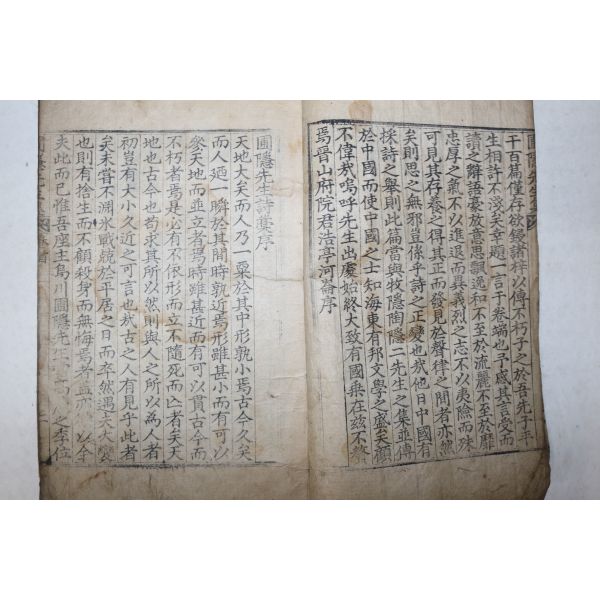 千百篇僅存欲鋟諸梓以傳不朽子之於吾先子平
生相許不淺矣幸題一言于卷端也予感其言受而
讀之辭語豪放意思飄逸和不至於流麗不至於靡
忠厚之氣不以進退而異義烈之志不以夷險而殊
可見其存養之得其正而發見於聲律之間者亦然
矣則思之無邪豈係乎詩之正變也哉他日中國有
採詩之舉則此篇當與牧隱陶隱二先生之集並傳
於中國而使中國之士知海東有邦文學之盛矣顧
不偉哉嗚呼先生出處始終大致有國乘在玆不贅
焉晉山府院君浩亭河崙序
圃隱先生詩藁序
天地大矣而人乃一粟於其中形孰小焉古今久矣
而人過一瞬於其間時孰近焉形雖甚小而有可以
參天地而並立者焉時雖甚近而有可以貫古今而
不朽者焉是必有不依形而立不隨死而亡者矣天
地也古今也苟求其所以然則與人之所以為人者
初豈有大小久近之可言也哉古之人有見乎此者
矣未嘗不淵氷戰兢於平居之日而卒然遇夫大變
也則有捨生而不顧殺身而無悔焉者蓋亦以全
夫此而已惟吾座主烏川圃隱先生之季位